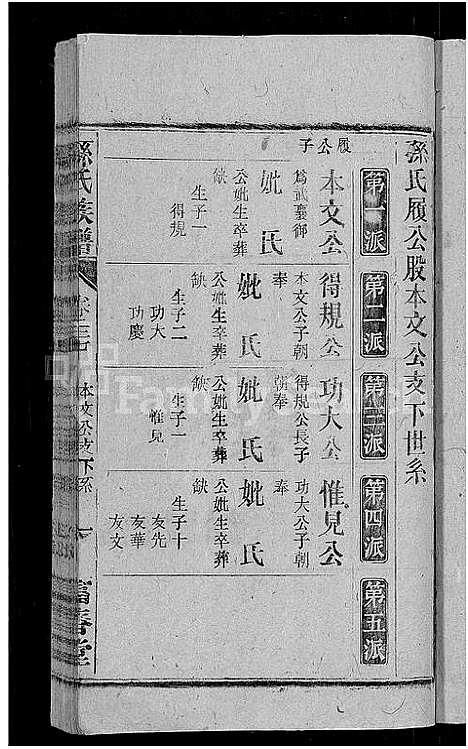 孫氏履公股本文公支下世系
第一派
第二派
第三派
第四派
第五派
履公子
本文公
為武襄御
妣氏
公妣生卒葬
缺
生子一
得規
得規公
本文公子朝
奉
妣氏
公妣生卒葬
缺
生子二
功大
功慶
功大公
得規公長子
朝奉
妣氏
公妣生卒葬
缺
生子一
惟見
惟見公
功大公子朝
奉
妣氏
公妣生卒葬
缺
生子十
友先
友華
友文
孫氏族譜
本文公支下系
富春堂